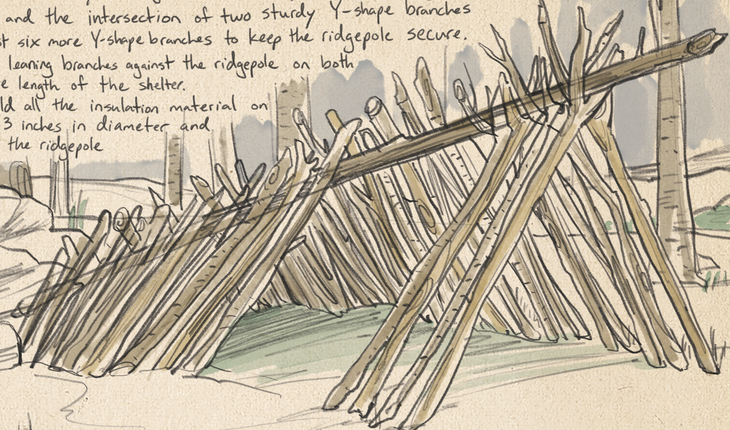 and the intersection of two sturdy Y-shape branches
six more Y-shape branches to keep the ridgepole secure.
leaning branches against the ridgepole on both
length of the shelter.
all the insulation material on
3 inches in diameter and
the ridgepole